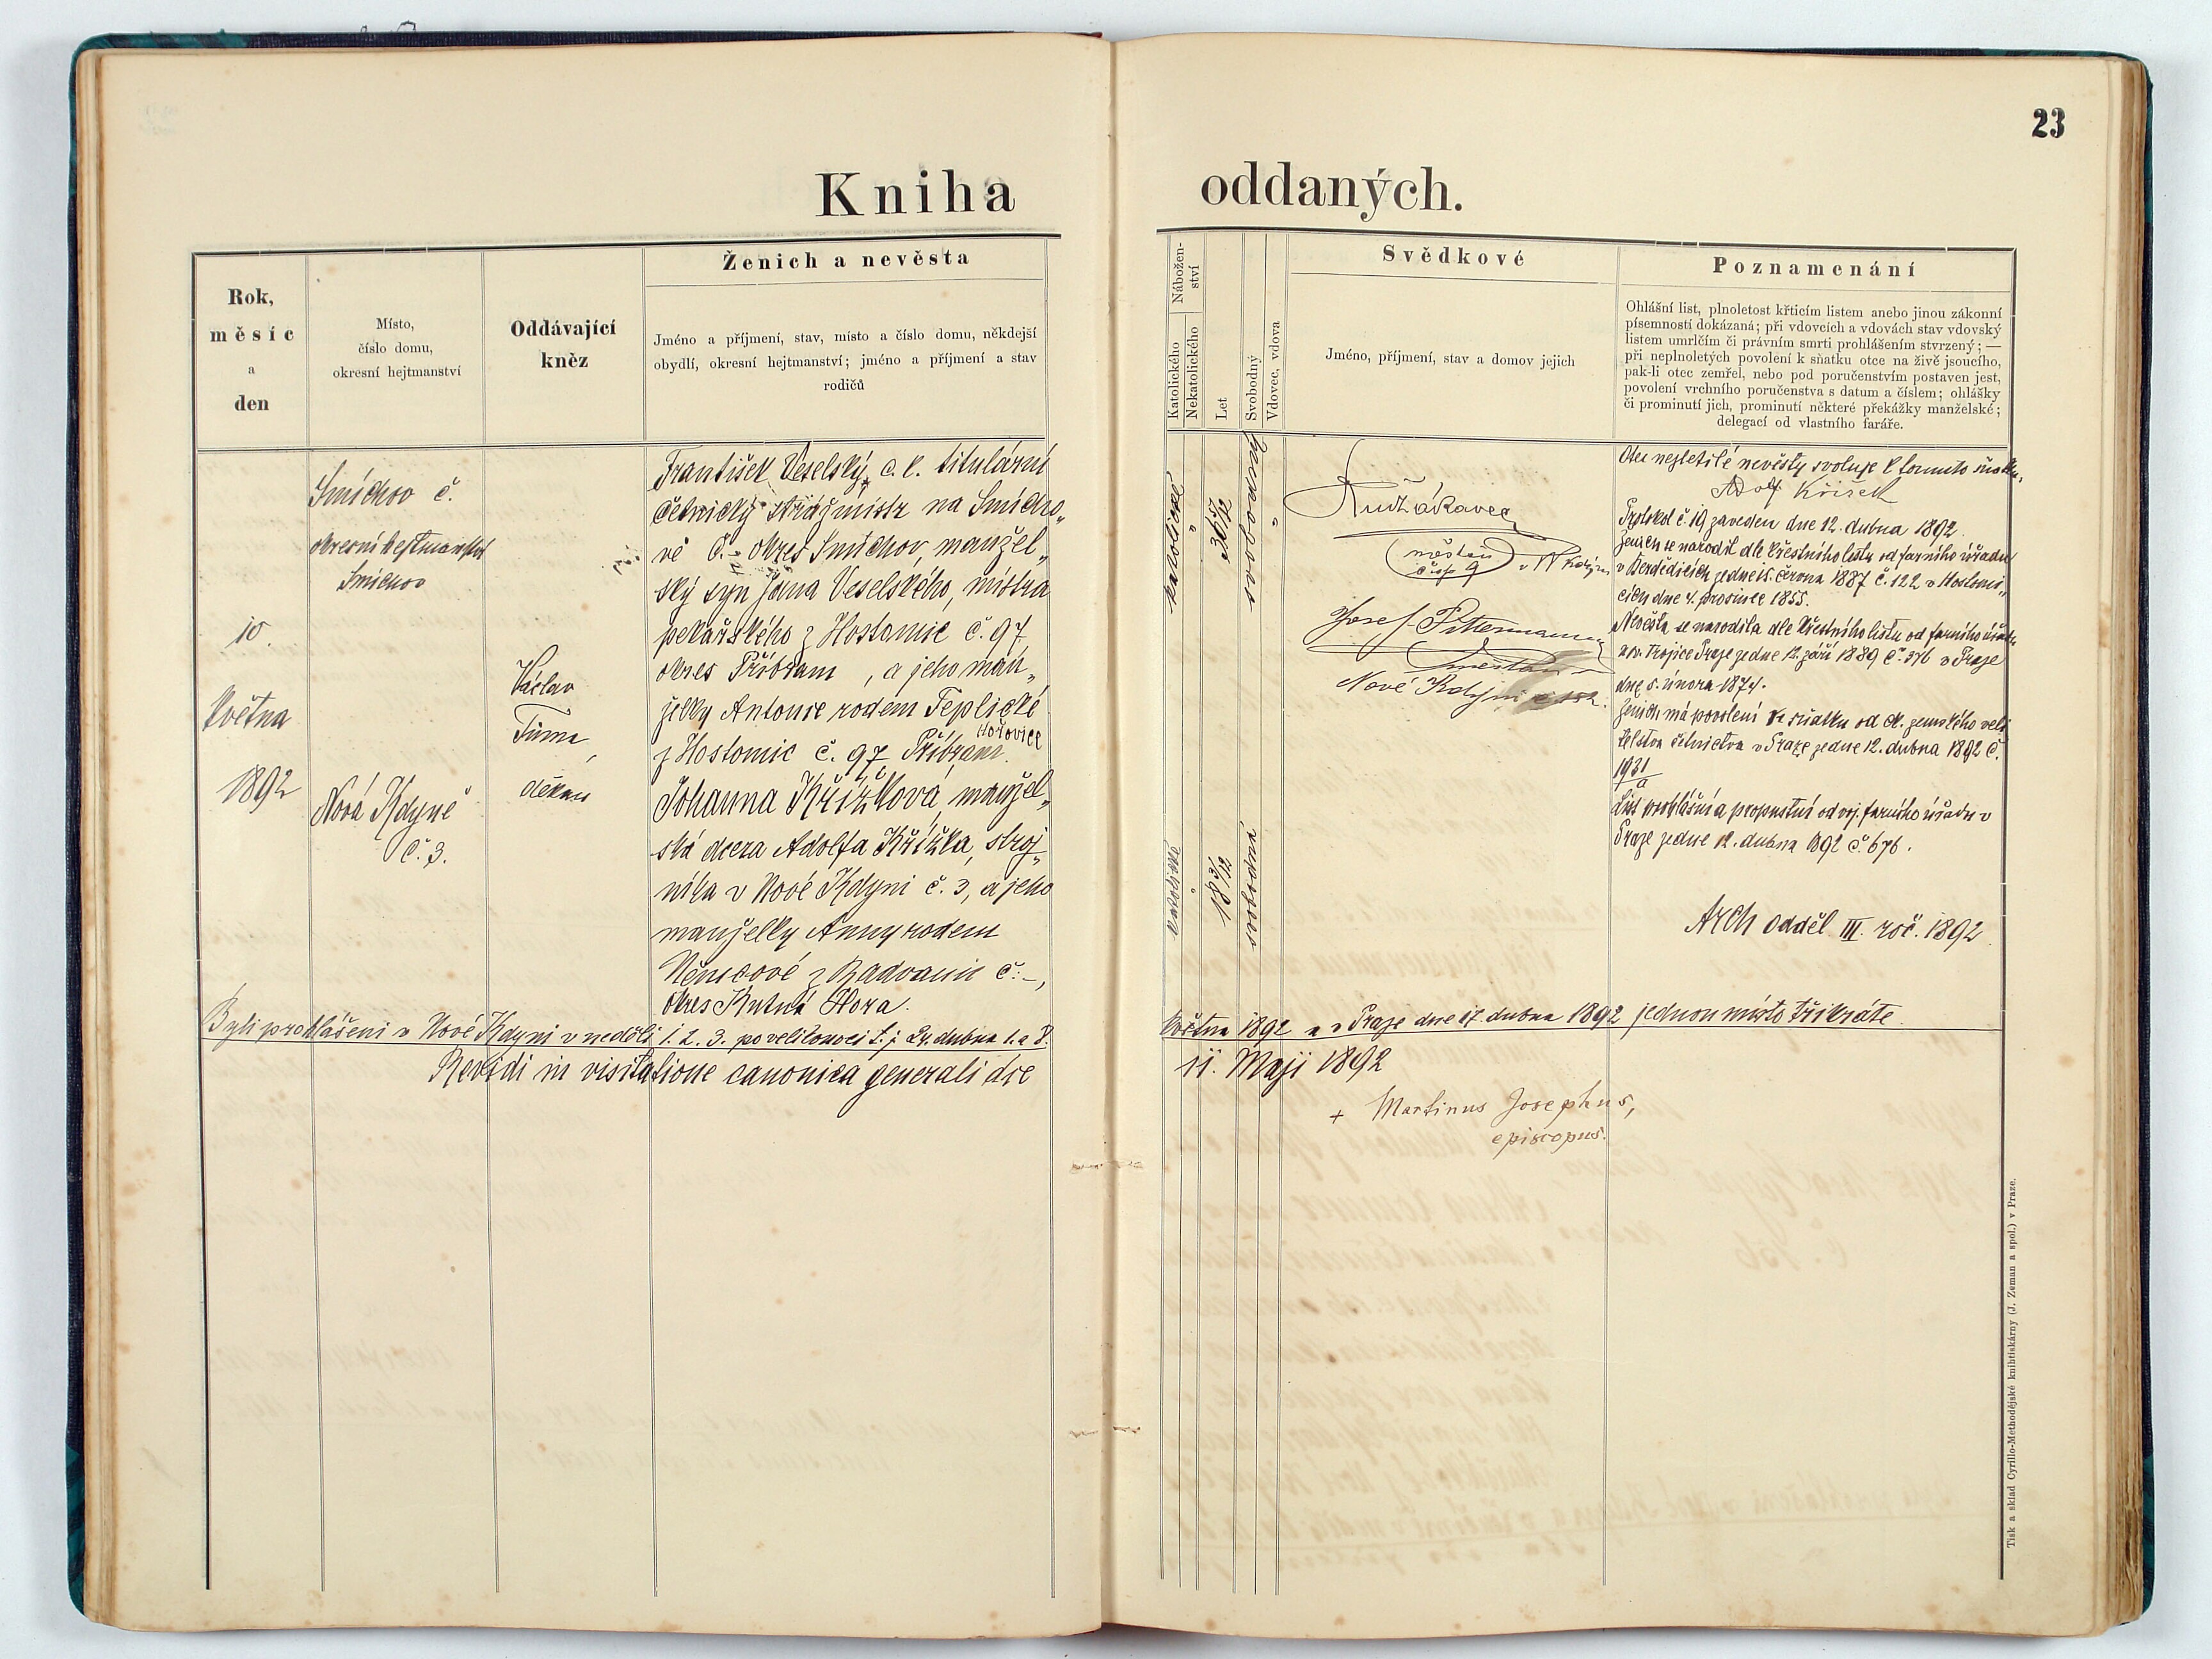 23
Kniha oddaných.
Rok,
měsíc
a
den
Místo,
číslo domu,
okresní hejtmanství
Oddávající
kněz
Ženich a nevěsta
Jméno a příjmení, stav, místo a číslo domu, někdejší
obydlí, okresní hejtmanství; jméno a příjmení a stav
rodičů
Nábožen-
ství
Katolického
Nekatolického
Let
Svobodný
Vdovec, vdova
Svědkové
Jméno, příjmení, stav a domov jejich
Poznamenání
Ohlášní list, plnoletost křticím listem anebo jinou zákonní
písemností dokázaná; při vdovcích a vdovách stav vdovský
listem umrlčím či právním smrti prohlášením stvrzený; —
při neplnoletých povolení k sňatku otce na živě jsoucího,
pak-li otec zemřel, nebo pod poručenstvím postaven jest,
povolení vrchního poručenstva s datum a číslem; ohlášky
či prominutí jich, prominutí některé překážky manželské;
delegací od vlastního faráře.
10.
Května
1892
Smíchov č.
okresní hejtmanství
Smíchov
Nová Kdyně
č. 3.
Václav
Tůma,
děkan
František Veselský, c. k. titulární
četnický strážmistr na Smícho„
vě č. - okres Smíchov, manžel„
ský syn Jana Veselského, mistra
pekařského z Hostomic č. 97,
okres Příbram, a jeho man„
želky Antonie rodem Teplické
Hořovice
z Hostomic č. 97, Příbram.
Johanna Křížková, manžel„
ská dcera Adolfa Křížka, stroj„
níka v Nové Kdyni č. 3, a jeho
manželky Anny rodem
Němcové z Radvanic č. -,
okres Kutná Hora.
katolické
"
36 5/12
svobodný
"
katolické
"
18 3/12
svobodná
měšťan
čp 9 v N Kdyni
Josef Pittermann
Nové Kdyni
Otec nezletilé nevěsty svoluje k tomuto sňatku.
Adolf Křížek
Protokol č. 19 zaveden dne 12. dubna 1892.
Ženich se narodil dle křestního listu od farního úřadu
června 1887 č. 122 v Hostomi„
cích dne 4. prosince 1855.
Nevěsta se narodila dle křestního listu od farního úřadu
u sv. Trojice Praze ze dne 12. září 1889 č. 376 v Praze
dne 5. února 1874.
Ženich má povolení ke sňatku od ck. zemského veli
telstva četnictva v Praze ze dne 12. dubna 1892 č.
1931
/a
List prohlášní a propustní od voj. farního úřadu v
Praze ze dne 12. dubna 1892 č. 676.
Arch odděl III. roč. 1892
Byli prohlášeni v Nové Kdyni v neděli 1. 2. 3. po velikonoci t. j. 24. dubna 1. a 8. května 1892 a v Praze dne 17. dubna 1892 jednou místo třikráte.
Revidi in visitatione canonica generali die 11. Maji 1892
+ Martinus Josephus,
episcopus.
Tisk a sklad Cyrillo-Methodějské knihtiskárny (J. Zeman a spol.) v Praze.